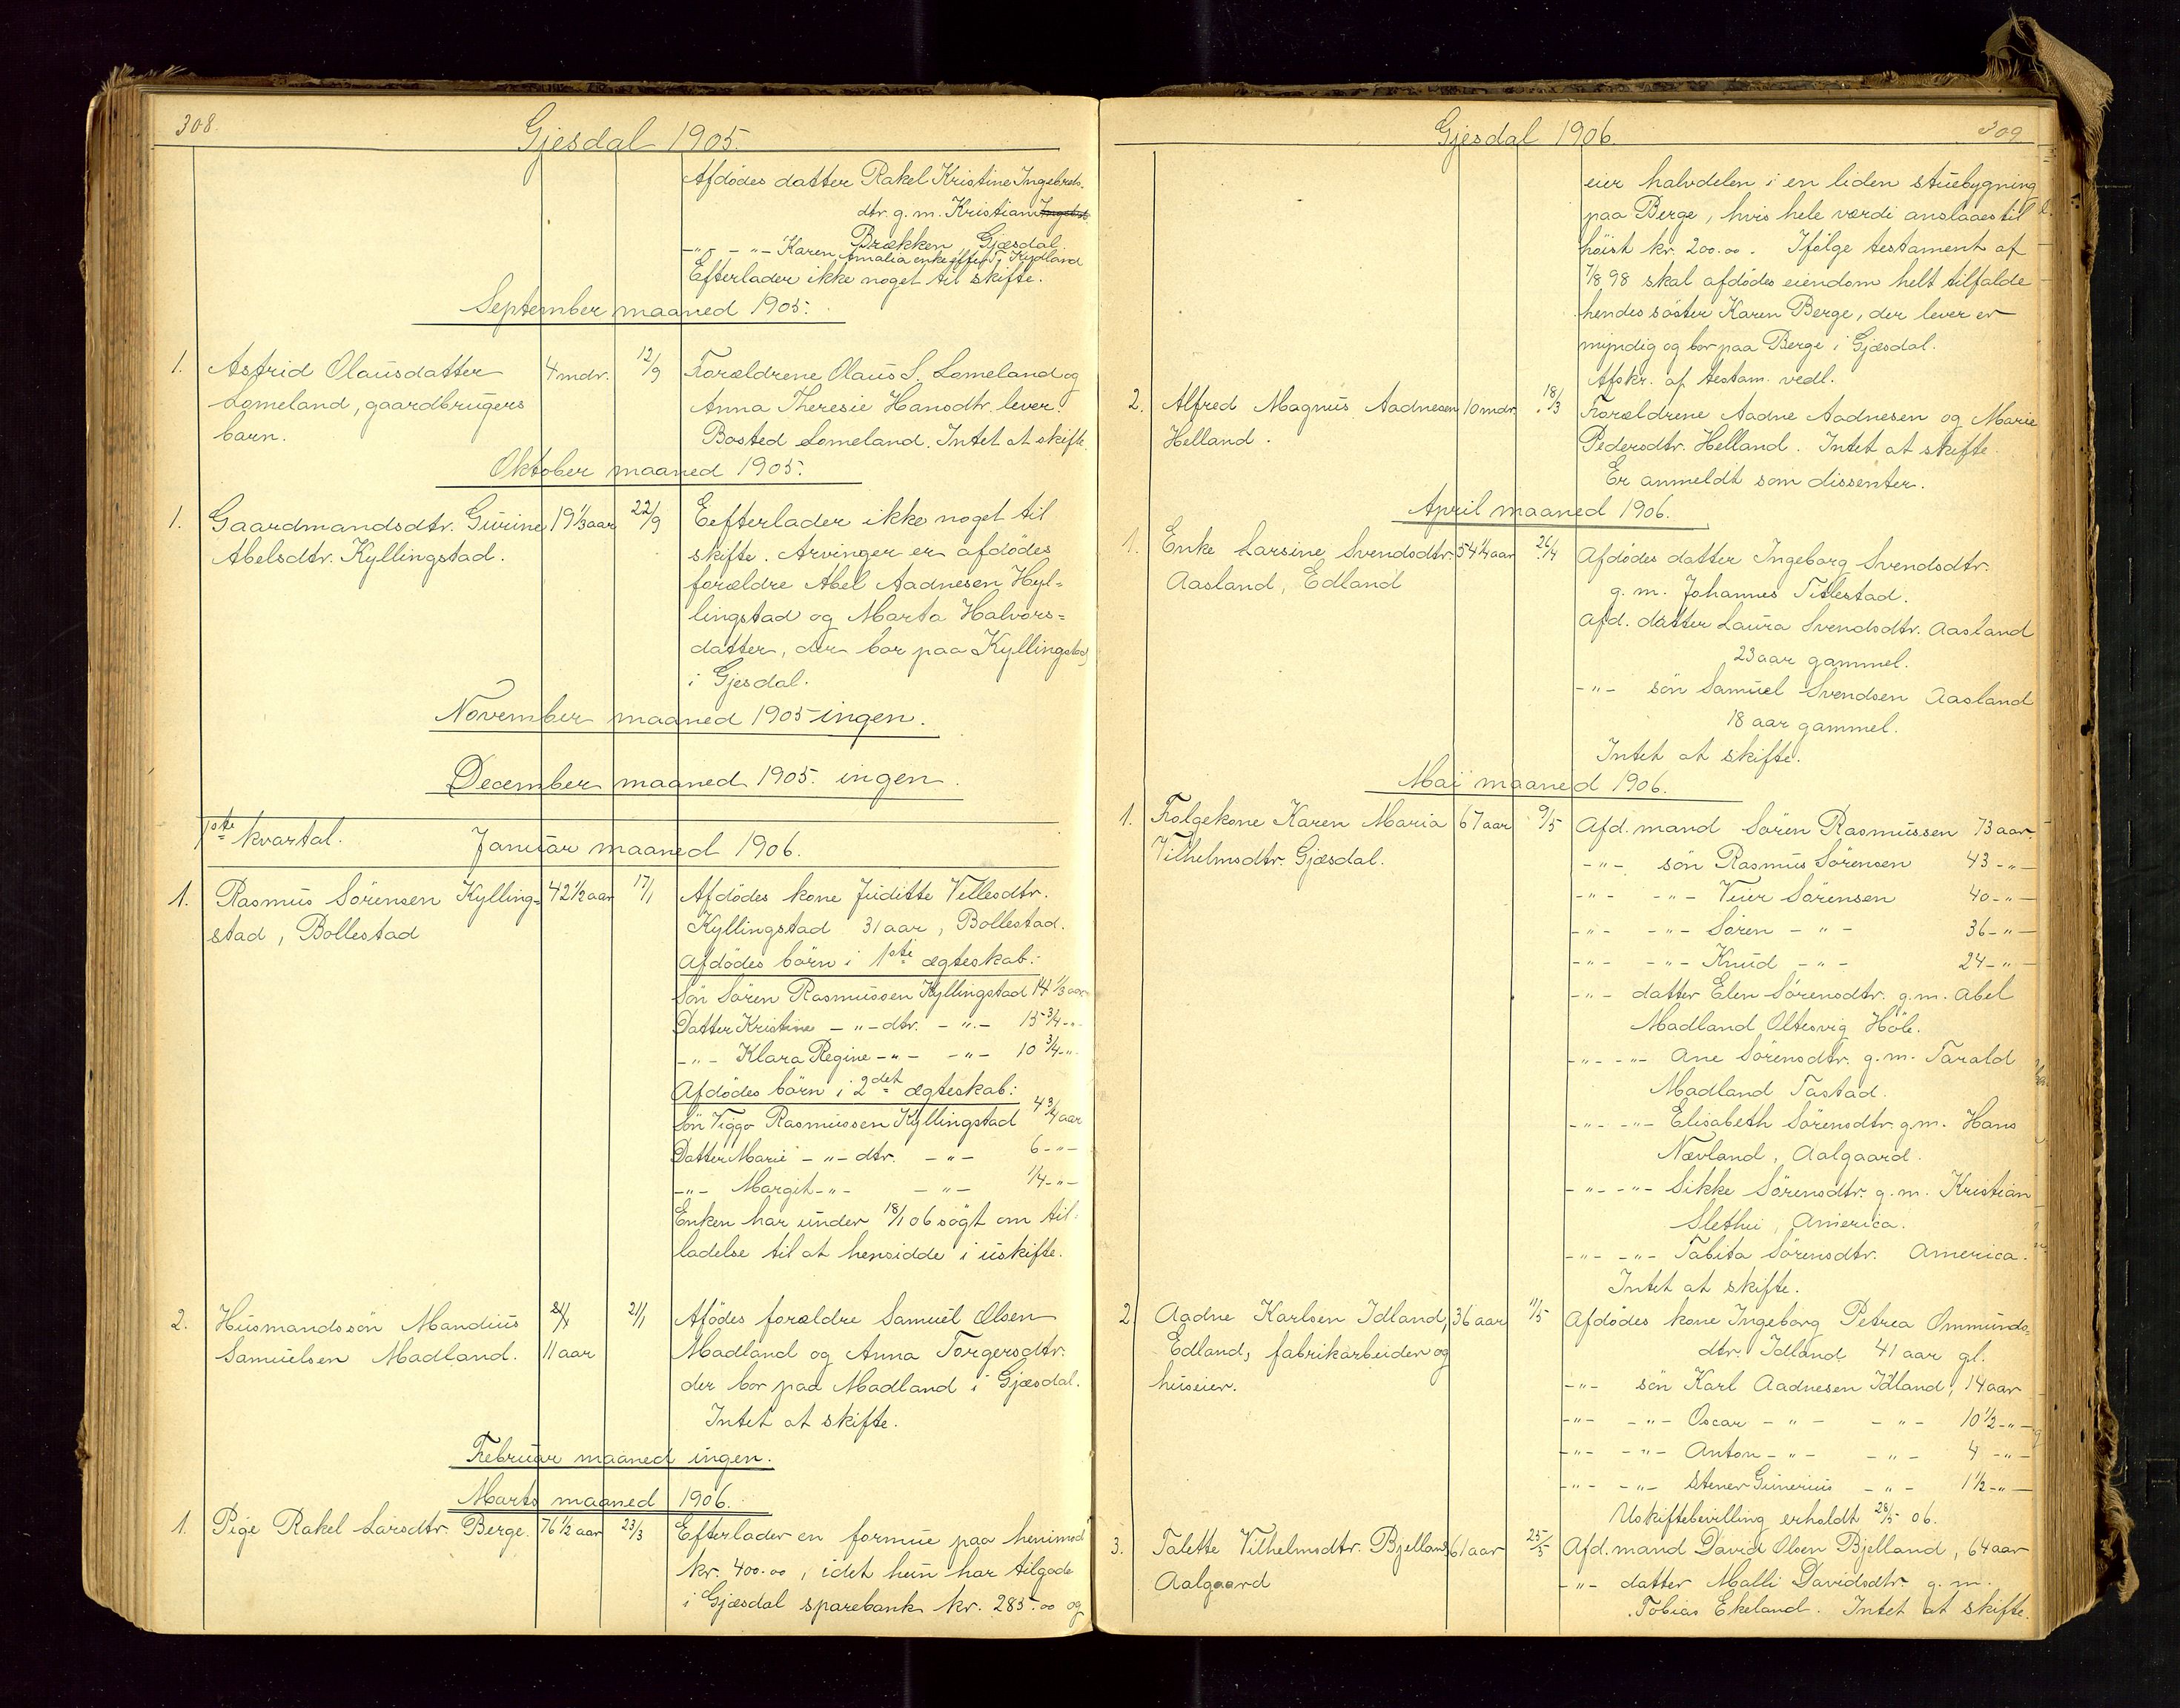 308.
Gjesdal 1905.
Afdödes datter Rakel Kristine Ingebrets.
dtr. g. m. Kristian
Brækken, Gjæsdal.
-"- -"- Karen Amalia enke efter T. Kydland
Efterlader ikke noget til skifte.
September maaned 1905.
1. Astrid Olausdatter 4 mdr. 12/9 Forældrene Olaus S. Lomeland og
Lomeland, gaardbrugers Anna Theresie Hansdtr. lever.
barn. Bosted Lomeland. Intet at skifte.
Oktober maaned 1905.
1. Gaardmandsdtr. Gurine 19 1/3 aar 22/9 Eefterlader ikke noget til
Abelsdtr. Kyllingstad. skifte. Arvinger er afdödes
forældre Abel Aadnesen Kyl=
lingstad og Marta Halvors=
datter, der bor paa Kyllingstad
i Gjesdal.
November maaned 1905 ingen.
December maaned 1905. ingen.
1ste kvartal. Januar maaned 1906.
1. Rasmus Sörensen Kylling= 42 1/2 aar 17/1 Afdödes kone Juditte Vellesdtr.
stad, Bollestad Kyllingstad 31 aar, Bollestad.
Afdödes börn i 1ste ægteskab:
Sön Sören Rasmussen Kyllingstad 14 1/3 aar
Datter Kristine -"- dtr. -"- 13 3/4 -"-
-"- Klara Regine -"- -"- 10 3/4 -"-
Afdödes börn i 2det ægteskab:
Sön Viggo Rasmussen Kyllingstad 4 3/4 aar
Datter Marie -"- dtr. -"- 6 -"-
-"- Margit -"- -"- 1/4 -"-
Enken har under 18/1 06 sögt om til=
ladelse til at hensidde i uskifte.
2. Husmandssön Mandius 21/1 Afödes forældre Samuel Olsen
Samuelsen Madland. 11 aar Madland og Anna Torgersdtr.
der bor paa Madland i Gjæsdal.
Intet at skifte.
Februar maaned ingen.
Marts maaned 1906.
1. Pige Rakel Larsdtr. Berge. 76 1/2 aar 23/3 Efterlader en formue paa henimod
kr. 400.00, idet hun har tilgode
i Gjæsdal sparebank kr. 285.00 og
Gjesdal 1906.
309
eier halvdelen i en liden stuebygning
paa Berge, hvis hele værdi anslaaes til
höist kr. 200.00. Ifölge testament af
7/8 98 skal afdödes eiendom helt tilfalde
hendes söster Karen Berge, der lever er
myndig og bor paa Berge i Gjæsdal.
Afskr. af testam. vedl.
2. Alfred Magnus Aadnesen 10 mdr. 18/3 Forældrene Aadne Aadnesen og Marie
Helland. Pedersdtr. Helland. Intet at skifte.
Er anmeldt som dissenter.
April maaned 1906.
1. Enke Larsine Svendsdtr. 54 1/4 aar 26/4 Afdödes datter Ingeborg Svendsdtr.
Aasland, Edland g. m. Johannes Titlestad.
Afd. datter Laura Svendsdtr. Aasland
23 aar gammel.
-"- sön Samuel Svendsen Aasland
18 aar gammel.
Intet at skifte.
Mai maaned 1906.
1. Folgekone Karen Maria 67 aar 9/5 Afd. mand Sören Rasmussen 73 aar
Vilhelmsdtr. Gjæsdal. -"- sön Rasmus Sörensen 43 -"-
-"- -"- Sörensen 40 -"-
-"- -"- Sören -"- 36 -"-
-"- -"- Knud -"- 24 -"-
-"- datter Elen Sörensdtr. g. m. Abel
Madland, Oltesvig Höle.
-"- -"- Ane Sörensdtr. g. m. Tarald
Madland Tastad.
-"- -"- Elisabeth Sörensdtr. g. m. Hans
Nævland, Aalgaard.
-"- -"- Sikke Sörensdtr. g. m. Kristian
Slethei, America.
-"- -"- Tabita Sörensdtr. America.
Intet at skifte.
2. Aadne Karlsen Idland, 36 aar 11/5 Afdödes kone Ingeborg Petrea Ommunds=
Edland, fabrikarbeider og dtr. Idland 41 aar gl.
huseier. -"- sön Karl Aadnesen Idland, 14 aar
-"- -"- Oscar -"- -"- 10 1/2 -"-
-"- -"- Anton -"- -"- 4 -"-
-"- -"- Stener Gunerius -"- 1 1/2 -"-
Uskiftebevilling erholdt 28/5 06.
3. Talette Vilhelmsdtr. Bjelland 61 aar 25/5 Afd. mand David Olsen Bjelland, 64 aar
Aalgaard -"- datter Malli Davidsdtr. g. m.
Tobias Ekeland. Intet at skifte.